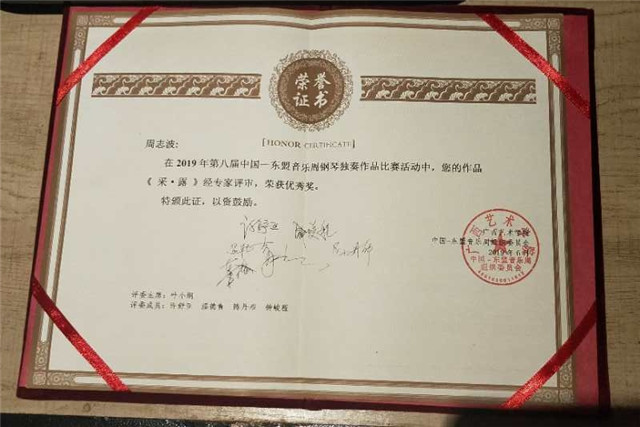 荣誉
证书
[ HONOR CERTIFICATE ]
周志波:
在 2019 年第八届中国—东盟音乐周钢琴独奏作品比赛活动中，您的作品
《 采·露 》经专家评审，荣获优秀奖。
特颁此证，以资鼓励。
广西艺术学院
中国-东盟音乐周组织委员会
2019 年 6 月
广西艺术学院
中国-东盟音乐周
组织委员会
评委主席：叶小纲
评委成员：